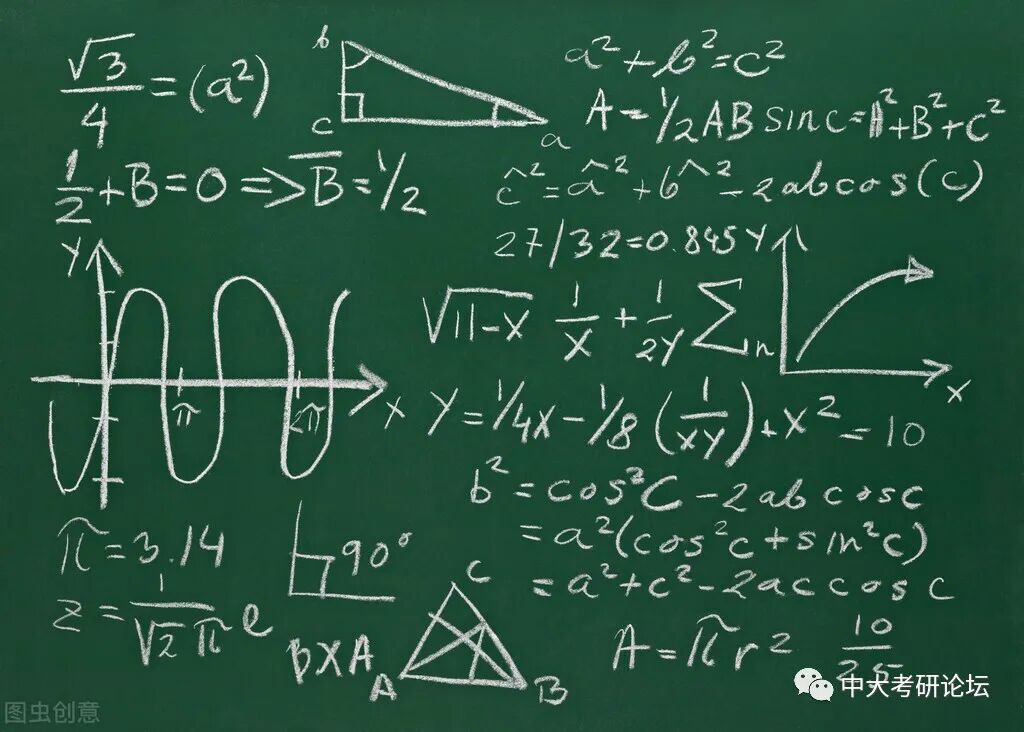 √3/4 = (a²)
b
c
a
a² + b² = c²
A = 1/2 AB sin c = A² + B² + C²
1/2 + B = 0 => B̅ = 1/2
c^² = a^² + b^² - 2abcos(c)
27/32 = 0.845
Y
X
Y
π
2π
X
√11-X 1/X + 1/2Y Σn
Y = 1/4X - 1/8 (1/XY) + X² = 10
b² = cos²C - 2ab cosc
= a²(cos²c + sin²c)
= a² + c² - 2accos c
π = 3.14
90°
z = 1/√2π e
BXA
C
A
B
A = πr²
10/25
中大考研论坛
图虫创意